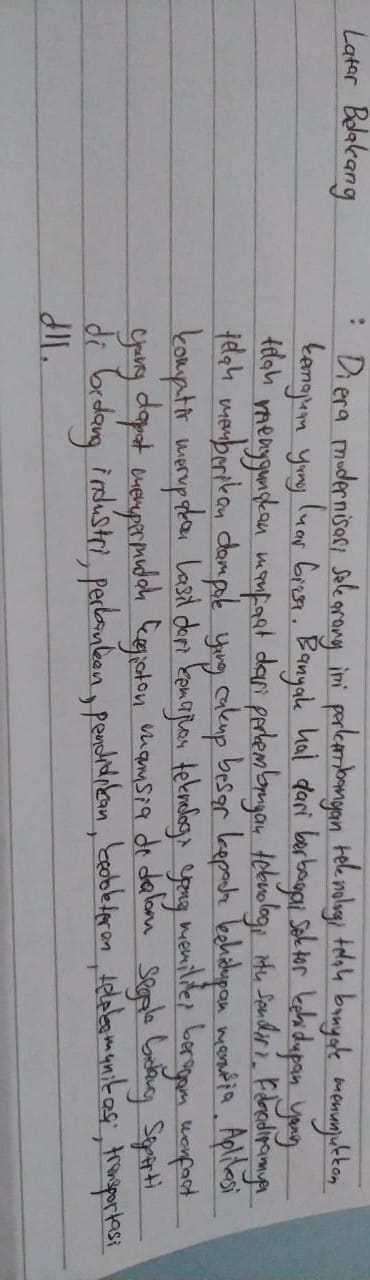 Latar Belakang : Di era modernisasi sekarang ini perkembangan teknologi telah banyak menunjukkan
kemajuan yang luar biasa. Banyak hal dari berbagai sektor kehidupan yang
telah menggunakan manfaat dari perkembangan teknologi itu sendiri. Kehadirannya
telah memberikan dampak yang cukup besar kepada kehidupan manusia. Aplikasi
komputer merupakan hasil dari kemajuan teknologi yang memiliki beragam manfaat
yang dapat mempermudah kegiatan manusia di dalam segala bidang seperti
di bidang industri, perbankan, pendidikan, kedokteran, telekomunikasi, transportasi
dll.